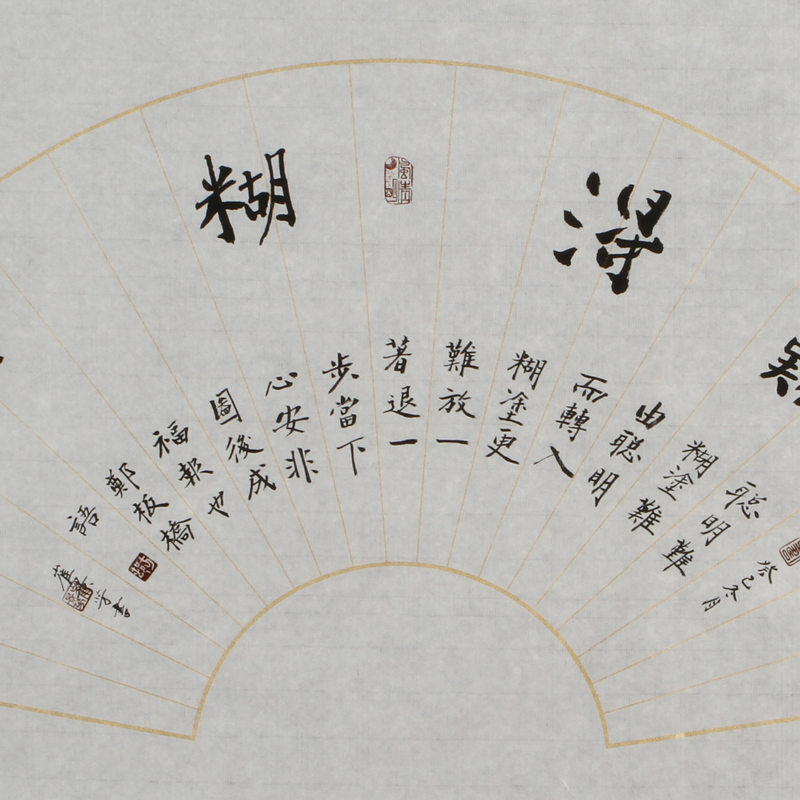 得糊
聪明難
糊塗難
由聪明
而轉入
糊塗更
難放一
著退一
步當下
心安非
圖後成
福報也
鄭板橋
語
癸巳冬月